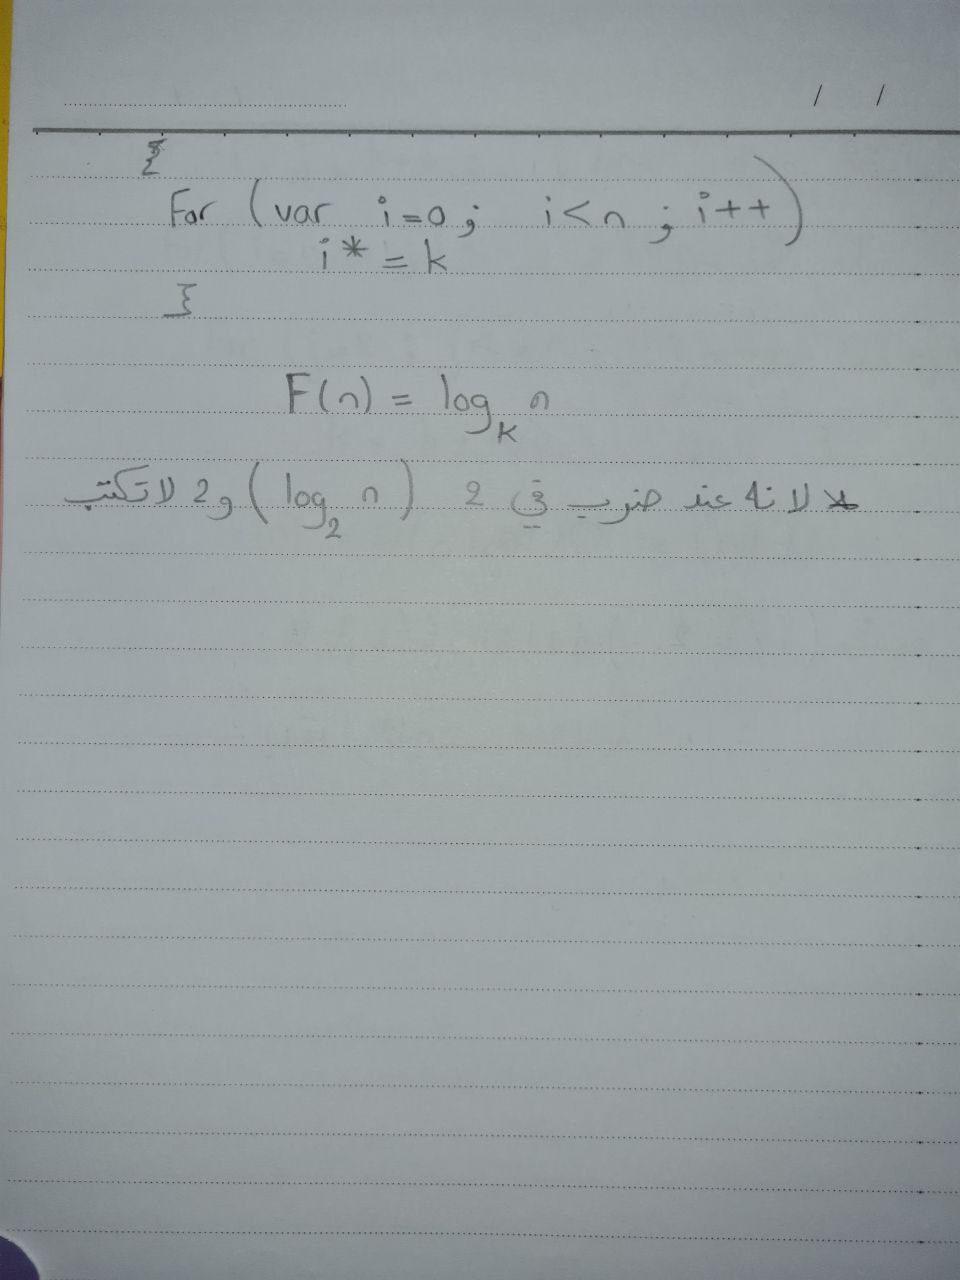 / /
{
For (var i=0; i<n; i++)
i*=k
}
F(n) = log_k n
* لانه عند ضرب في 2 (log_2 n) و2 لا تكتب